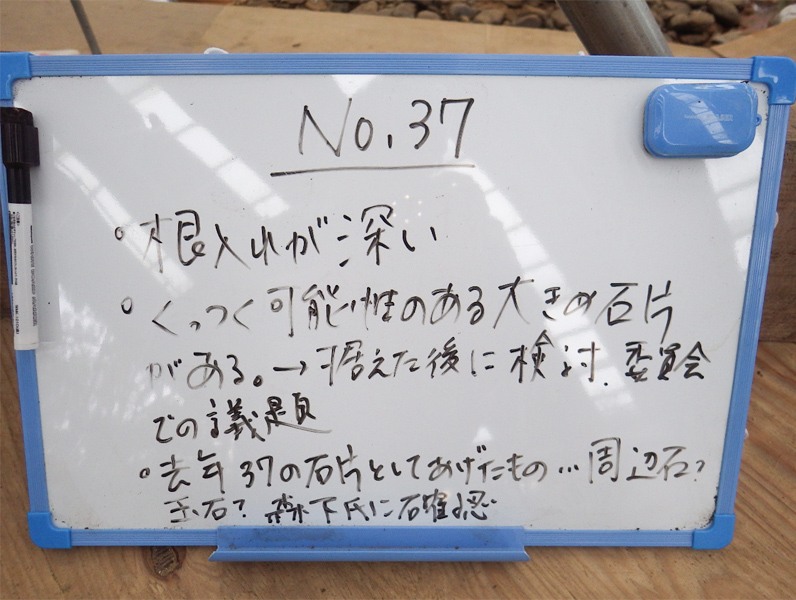 No.37
。根入れが深い
。くっつく可能性のある大きめ石片
がある。→据えた後に検討.委員会
での議題
。去年37の石片としてあげたもの…周辺石?
玉石? 森下氏に石確認